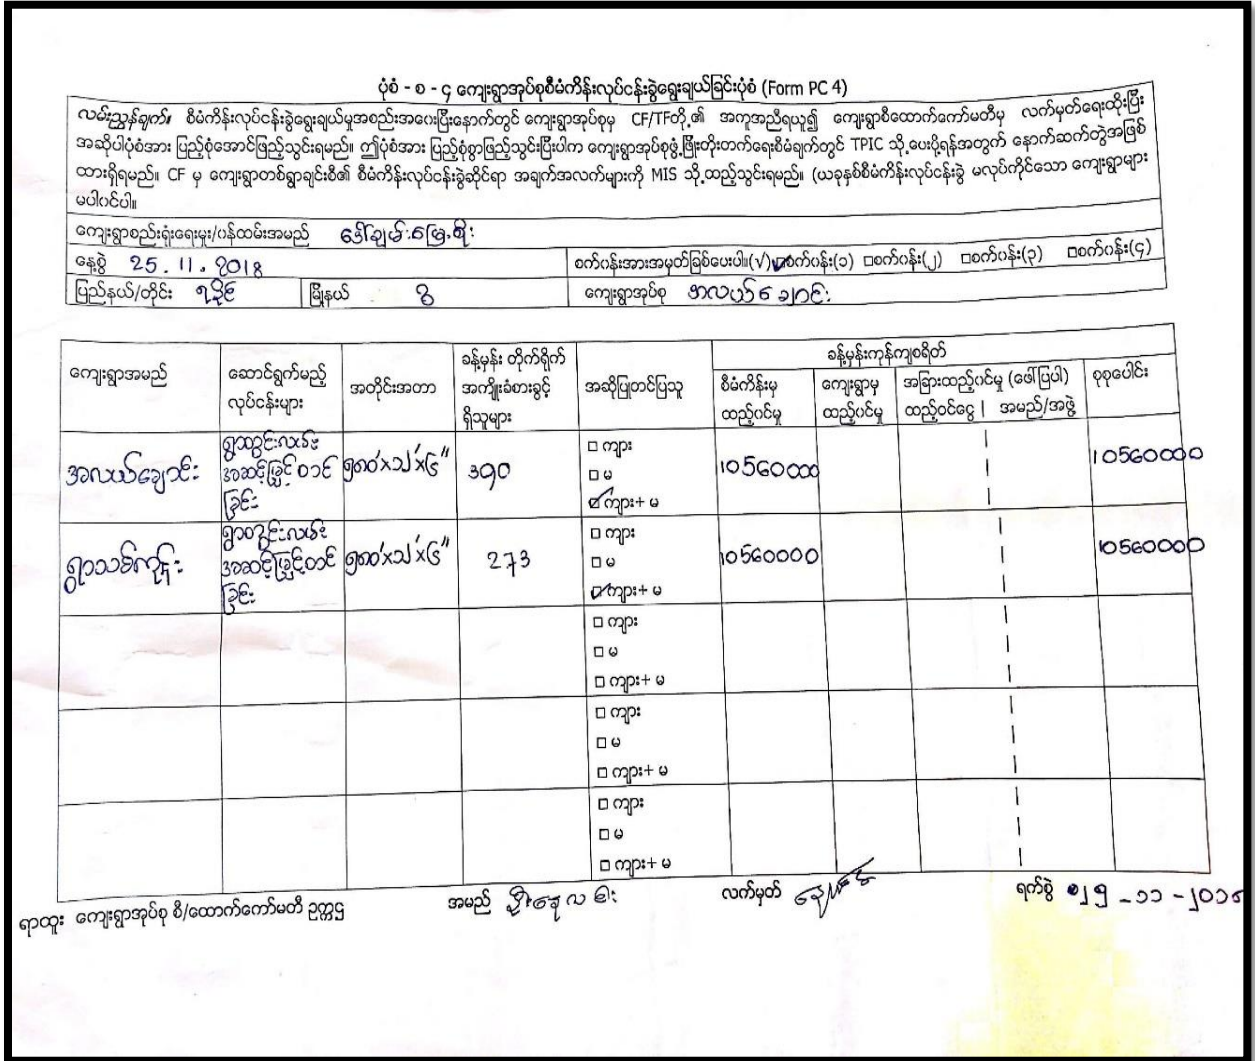 ပုံစံ - စ - ၄ ကျေးရွာအုပ်စုစီမံကိန်းလုပ်ငန်းခွဲရွေးချယ်ခြင်းပုံစံ (Form PC 4)
လမ်းညွှန်ချက်။ စီမံကိန်းလုပ်ငန်းခွဲရွေးချယ်မှုအစည်းအဝေးပြီးနောက်တွင် ကျေးရွာအုပ်စုမှ CF/TFတို့၏ အကူအညီရယူ၍ ကျေးရွာစီထောက်ကော်မတီမှ လက်မှတ်ရေးထိုးပြီး
အဆိုပါပုံစံအား ပြည့်စုံအောင်ဖြည့်သွင်းရမည်။ ဤပုံစံအား ပြည့်စုံစွာဖြည့်သွင်းပြီးပါက ကျေးရွာအုပ်စုဖွံ့ဖြိုးတိုးတက်ရေးစီမံချက်တွင် TPIC သို့ပေးပို့ရန်အတွက် နောက်ဆက်တွဲအဖြစ်
ထားရှိရမည်။ CF မှ ကျေးရွာတစ်ရွာချင်းစီ၏ စီမံကိန်းလုပ်ငန်းခွဲဆိုင်ရာ အချက်အလက်များကို MIS သို့ထည့်သွင်းရမည်။ (ယခုနှစ်စီမံကိန်းလုပ်ငန်းခွဲ မလုပ်ကိုင်သော ကျေးရွာများ
မပါဝင်ပါ။
ကျေးရွာစည်းရုံးရေးမှူး/ဝန်ထမ်းအမည် ဒေါ်ချမ်းမြေ့စိုး
နေ့စွဲ 25.11.2018 စက်ဝန်းအားအမှတ်ခြစ်ပေးပါ။(√) ☑စက်ဝန်း(၁) □စက်ဝန်း(၂) □စက်ဝန်း(၃) □စက်ဝန်း(၄)
ပြည်နယ်/တိုင်း ရခိုင် မြို့နယ် ဂွ ကျေးရွာအုပ်စု အလယ်ချောင်း
ခန့်မှန်းကုန်ကျစရိတ်
ကျေးရွာအမည် ဆောင်ရွက်မည့် လုပ်ငန်းများ အတိုင်းအတာ ခန့်မှန်း တိုက်ရိုက် အကျိုးခံစားခွင့် ရှိသူများ အဆိုပြုတင်ပြသူ စီမံကိန်းမှ ထည့်ဝင်မှု ကျေးရွာမှ ထည့်ဝင်မှု အခြားထည့်ဝင်မှု (ဖေါ်ပြပါ) ထည့်ဝင်ငွေ | အမည်/အဖွဲ့ စုစုပေါင်း
ရွာတွင်းလမ်း □ ကျား
အလယ်ချောင်း အဆင့်မြှင့်တင် ၅၈၀'x၁၂'x၆" ၃၉၀ □ မ 10560000 10560000
ခြင်း ☑ ကျား+ မ
ရွာတွင်းလမ်း □ ကျား
ရွာသစ်ကုန်း အဆင့်မြှင့်တင် ၅၈၀'x၁၂'x၆" 273 □ မ 10560000 10560000
ခြင်း ☑ ကျား+ မ
□ ကျား
□ မ
□ ကျား+ မ
□ ကျား
□ မ
□ ကျား+ မ
□ ကျား
□ မ
□ ကျား+ မ
ရာထူး ကျေးရွာအုပ်စု စီ/ထောက်ကော်မတီ ဥက္ကဋ္ဌ အမည် လက်မှတ် ရက်စွဲ ၂၅-၁၁-၂၀၁၈